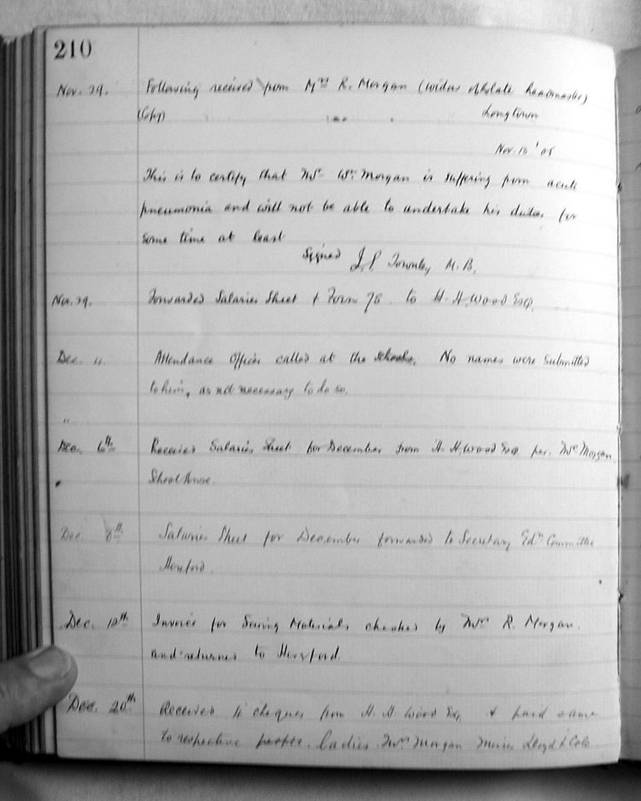 210
Nov. 29. Following received from Mrs R. Morgan (widow of late headmaster)
(Copy) Longtown
Nov. 15 '05
This is to certify that Mr. Wm. Morgan is suffering from acute
pneumonia and will not be able to undertake his duties for
some time at least
Signed J. P. Townley M.B.
Nov. 29. Forwarded Salaries Sheet & Form 78 to H. H. Wood Esq.
Dec. Attendance Officer called at the schools. No names were submitted
to him, as not necessary to do so.
"
Dec. 6th Received Salaries Sheet for December from H. H. Wood Esq per. Mrs Morgan
School House.
Dec 8th Salaries Sheet for December forwarded to Secretary Edn Committee
Hereford.
Dec. 12th Invoice for Sewing Materials checked by Mrs R. Morgan
and returned to Hereford.
Dec. 20th Received 4 cheques from H. H. Wood Esq. & paid same
to respective ladies Mrs Morgan Misses Lloyd & Cole